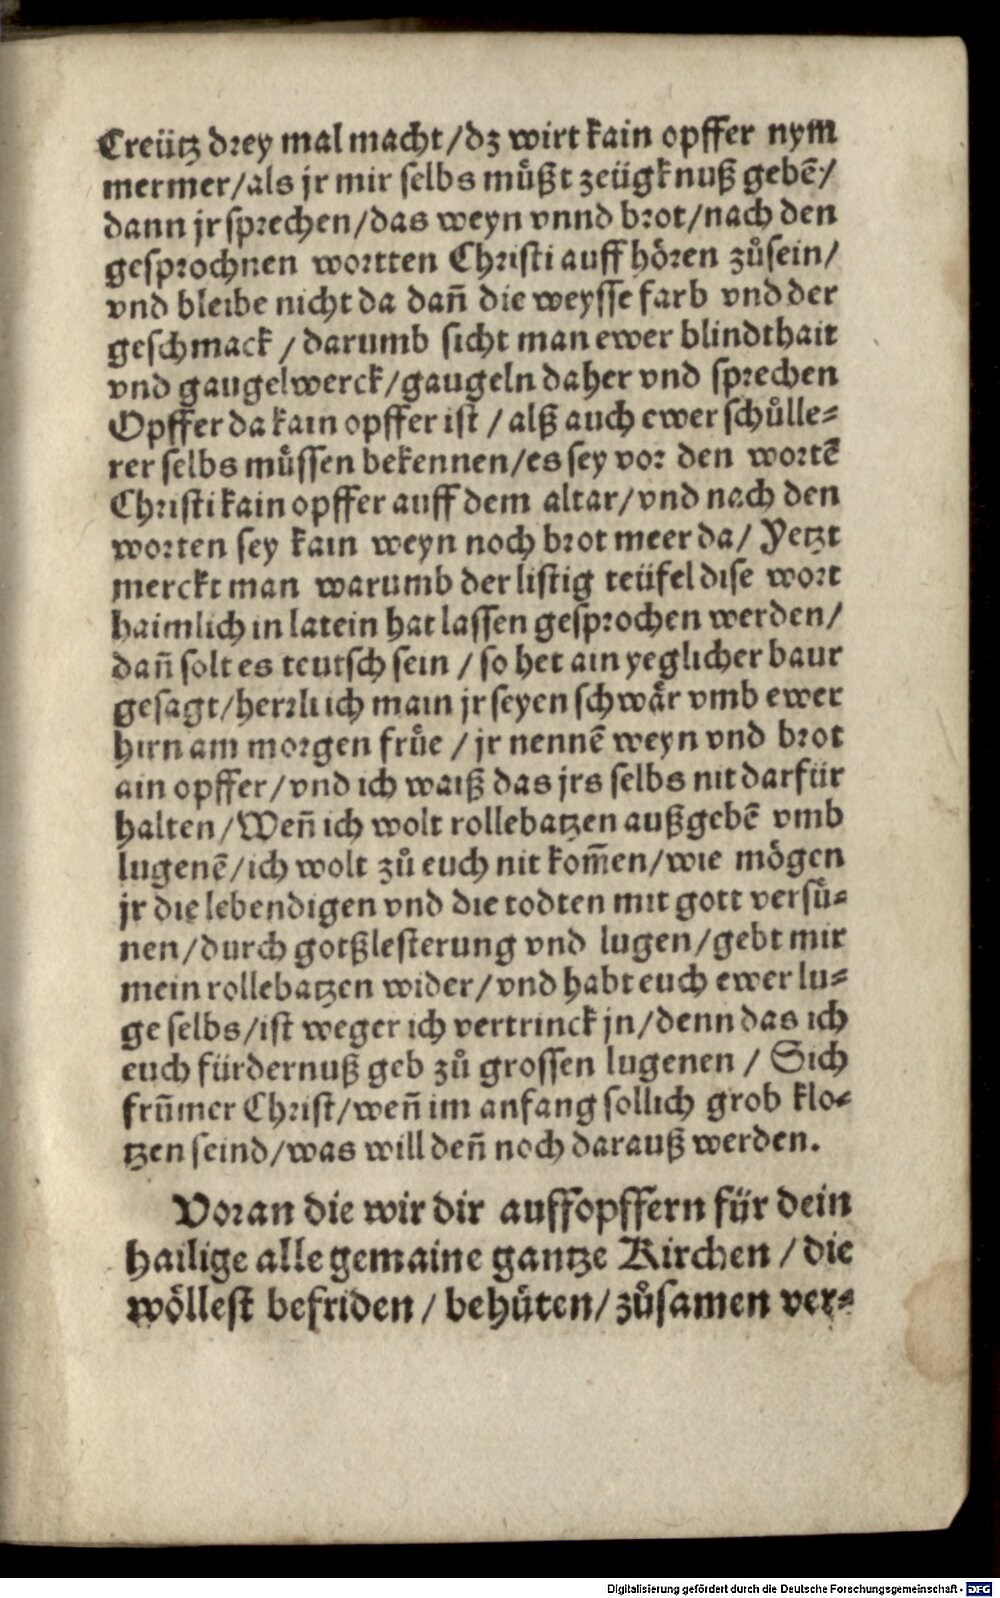 Creütz drey mal macht/dz wirt kain opffer nym
mermer/als jr mir selbs müͤßt zeügknuß gebē/
dann jr sprechen/das weyn vnnd brot/nach den
gesprochnen wortten Christi auff hören zůsein/
vnd bleibe nicht da dañ die weysse farb vnd der
geschmack / darumb sicht man ewer blindthait
vnd gaugelwerck/gaugeln daher vnd sprechen
Opffer da kain opffer ist / alß auch ewer schůlle⸗
rer selbs müͤssen bekennen/es sey vor den wortē
Christi kain opffer auff dem altar/vnd nach den
worten sey kain weyn noch brot meer da/ Yetzt
merckt man warumb der listig teüfel dise wort
haimlich in latein hat lassen gesprochen werden/
dañ solt es teutsch sein / so het ain yeglicher baur
gesagt/herr lich main jr seyen schwaͤr vmb ewer
hirn am morgen fruͤe / jr nennē weyn vnd brot
ain opffer/vnd ich waiß das jrs selbs nit darfür
halten/Weñ ich wolt rollebatzen außgebē vmb
lugenē/ich wolt zů euch nit kom̄en/wie mögen
jr die lebendigen vnd die todten mit gott versü⸗
nen/durch gotßlesterung vnd lugen/gebt mir
mein rollebatzen wider/vnd habt euch ewer lu⸗
ge selbs/ist weger ich vertrinck jn/denn das ich
euch fürdernuß geb zů grossen lugenen / Sich
frūmer Christ/weñ im anfang sollich grob klo⸗
tzen seind/was will deñ noch darauß werden.
Voran die wir dir auffopffern für dein
hailige alle gemaine gantze Kirchen / die
wöllest befriden / behüten/ zůsamen ver⸗
Digitalisierung gefördert durch die Deutsche Forschungsgemeinschaft - DFG